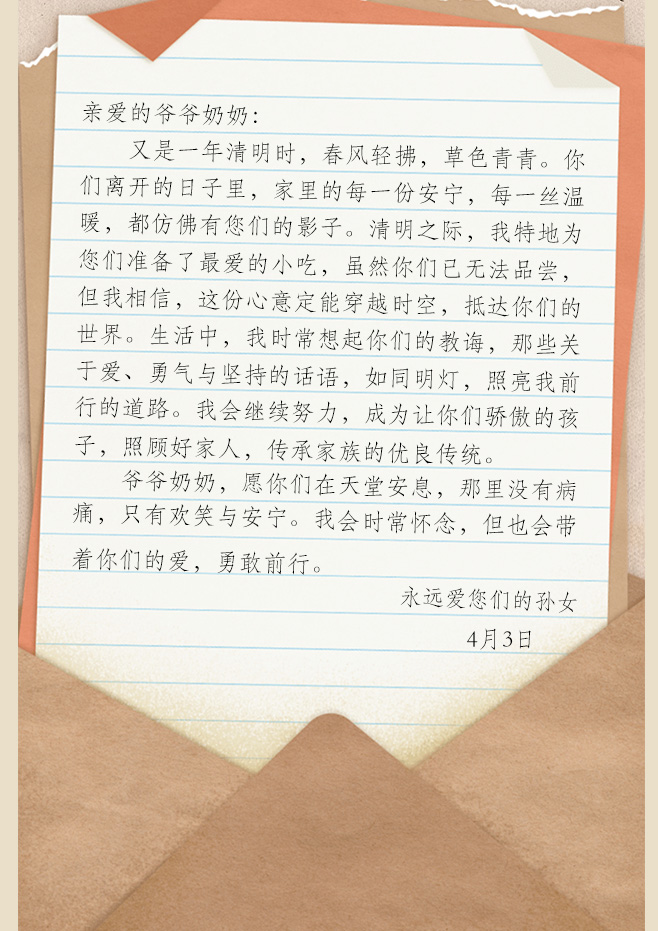 亲爱的爷爷奶奶：
又是一年清明时，春风轻拂，草色青青。你
们离开的日子里，家里的每一份安宁，每一丝温
暖，都仿佛有您们的影子。清明之际，我特地为
您们准备了最爱的小吃，虽然你们已无法品尝，
但我相信，这份心意定能穿越时空，抵达你们的
世界。生活中，我时常想起你们的教诲，那些关
于爱、勇气与坚持的话语，如同明灯，照亮我前
行的道路。我会继续努力，成为让你们骄傲的孩
子，照顾好家人，传承家族的优良传统。
爷爷奶奶，愿你们在天堂安息，那里没有病
痛，只有欢笑与安宁。我会时常怀念，但也会带
着你们的爱，勇敢前行。
永远爱您们的孙女
4月3日